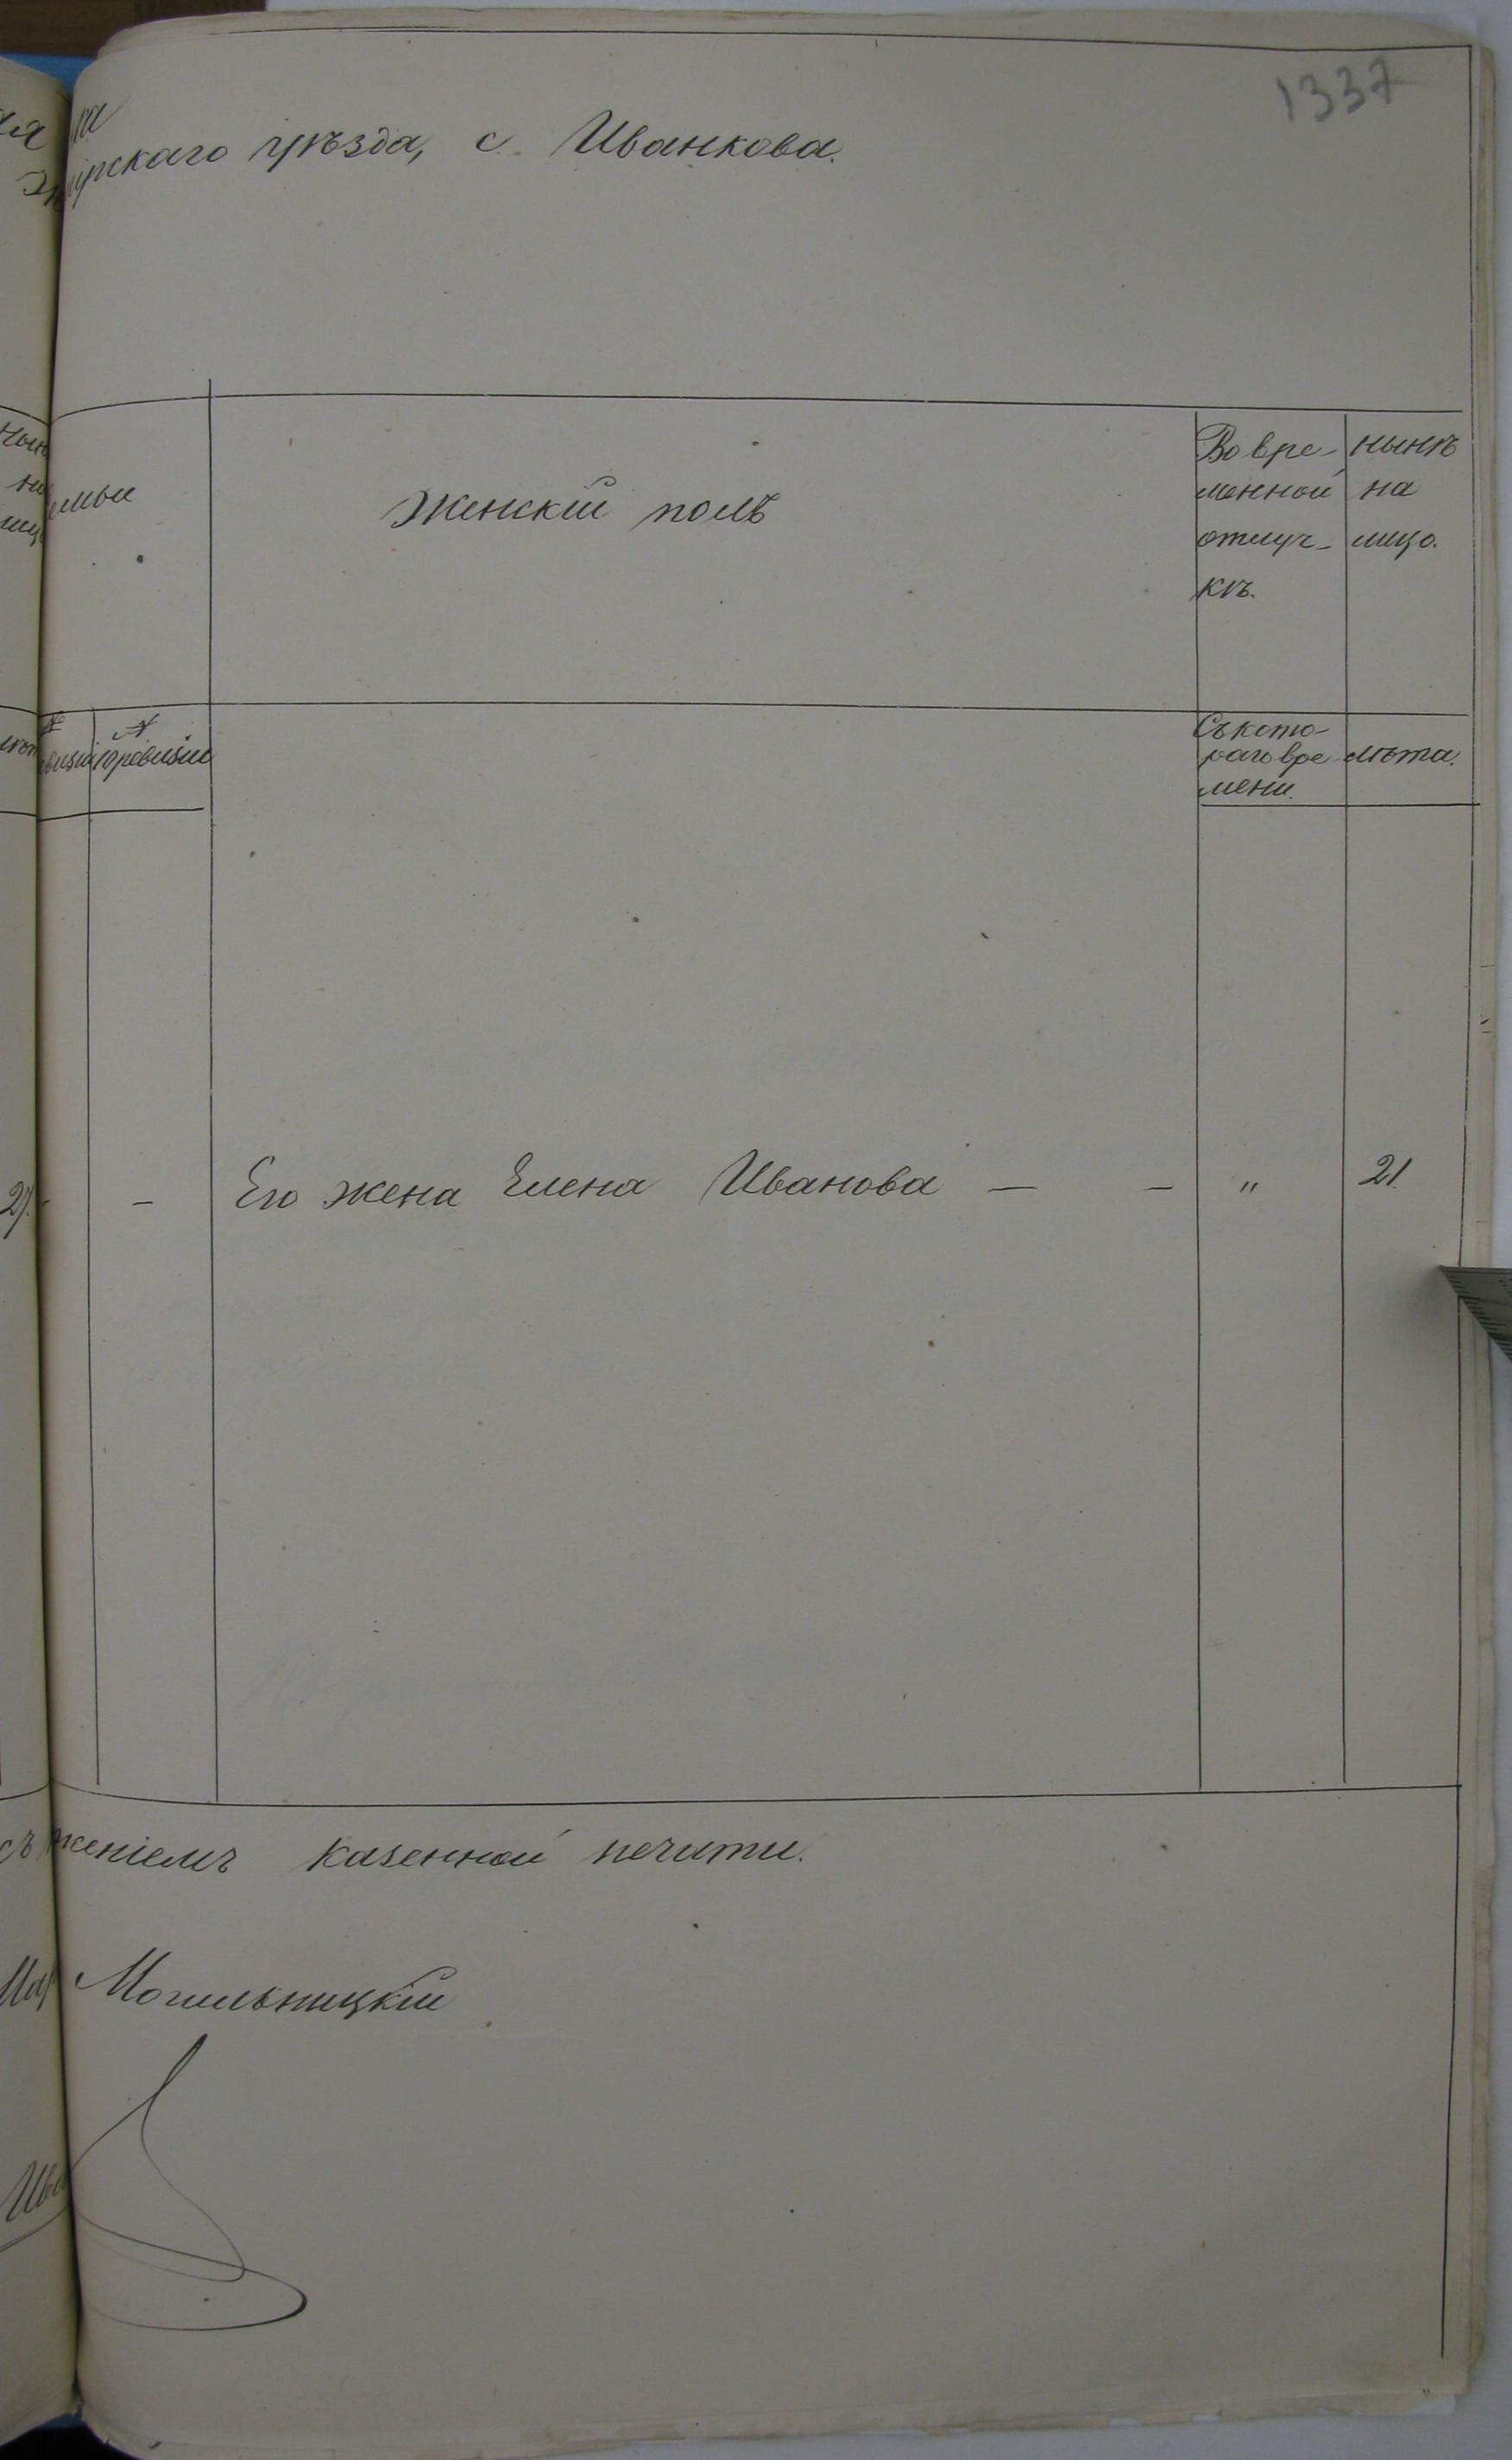 1337
уѣзда, с. Иванкова.
Женскій полъ
Во вре-
менной
отлуч-
кѣ.
нынѣ
на
лицо.
№
№
10 ревизіи
Съ кото-
раго вре-
мени.
Лѣта.
27.
- - Его жена Елена Иванова — — " 21.
казенной печати.
Могильницкій